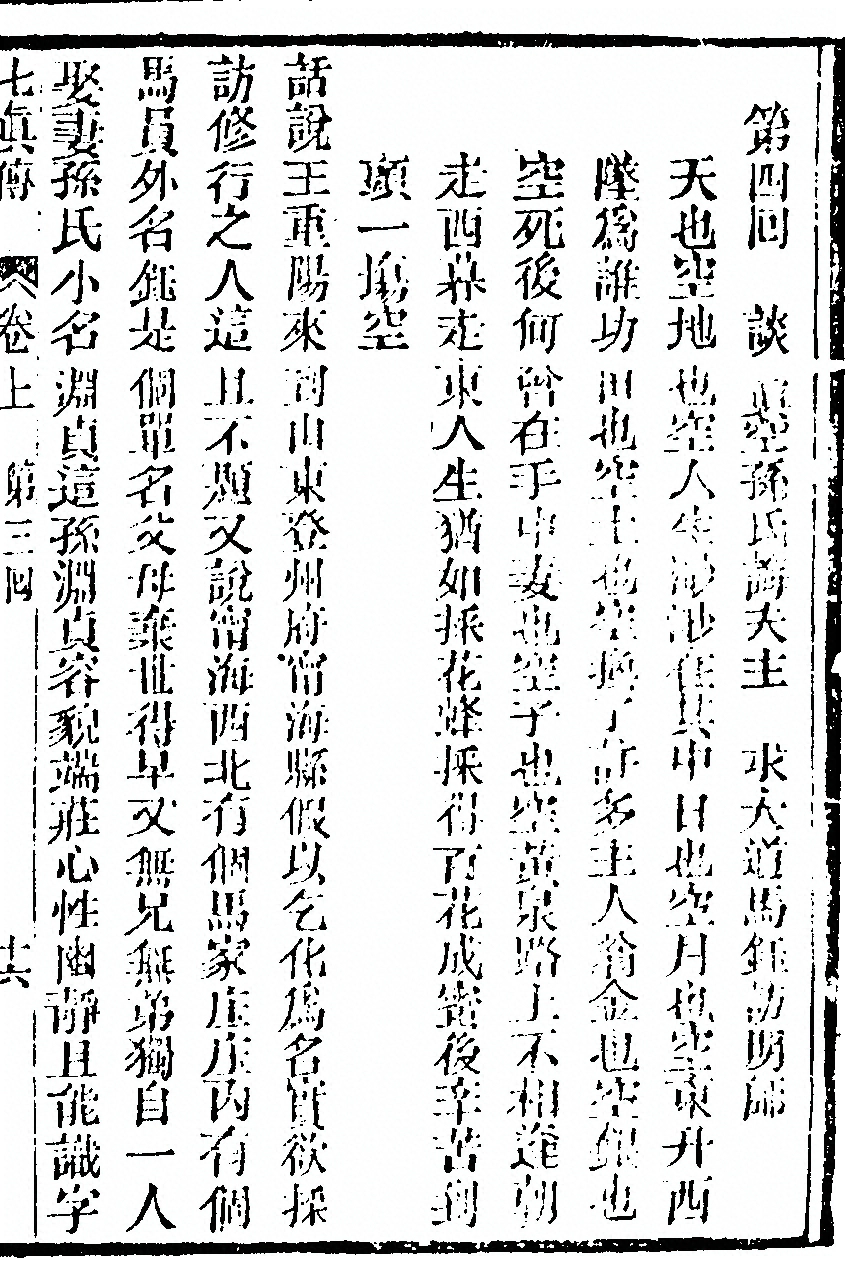 第四回　談真空孫氏誨夫主　求大道馬鈺訪明師
天也空地也空人生渺渺在其中日也空月也空東升西
墜為誰功田也空土也空換了許多主人翁金也空銀也
空死後何曾在手中妻也空子也空黃泉路上不相逢朝
走西暮走東人生猶如採花蜂採得百花成蜜後辛苦到
頭一塲空
話說王重陽來到山東登州府甯海縣假以乞化爲名實欲採
訪修行之人這且不題又說甯海西北有個馬家庄庄內有個
馬員外名鈺是個單名父母棄世得早又無兄無弟獨自一人
娶妻孫氏小名淵貞這孫淵貞容貌端莊心性幽靜且能識字
七眞傳　卷上　第三回　十六